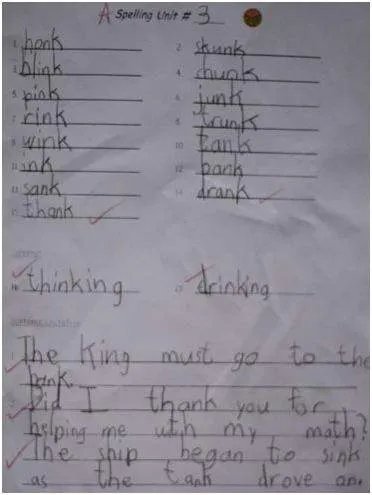 A Spelling Unit # 3
1. honk 2. skunk
3. blink 4. chunk
5. pink 6. junk
7. rink 8. trunk
9. wink 10. tank
11. ink 12. bank
13. sank 14. drank
15. thank
thinking drinking
The King must go to the
bank.
Did I thank you for
helping me uth my math?
The ship began to sink
as the tank drove on.